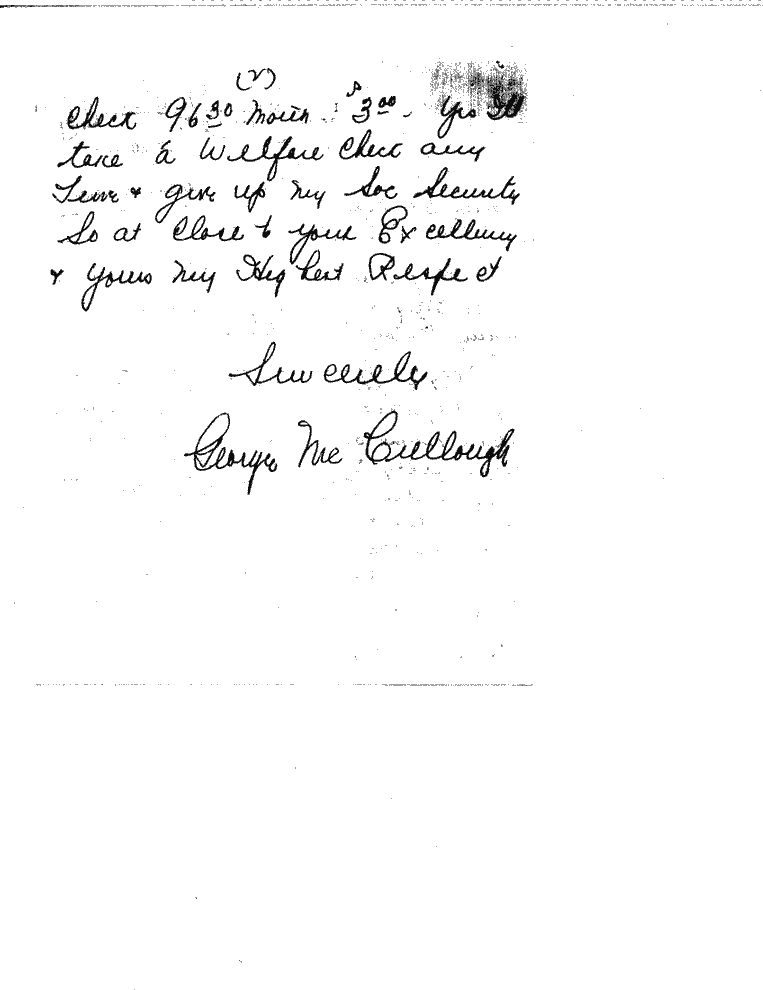 (2)
Check 96 30 Month $3 00. Yes I'll
take a Welfare Check any
Time & give up my Soc Security
So at Close to your Excellency
& yours my Highest Respect
Sincerely
George McCullough